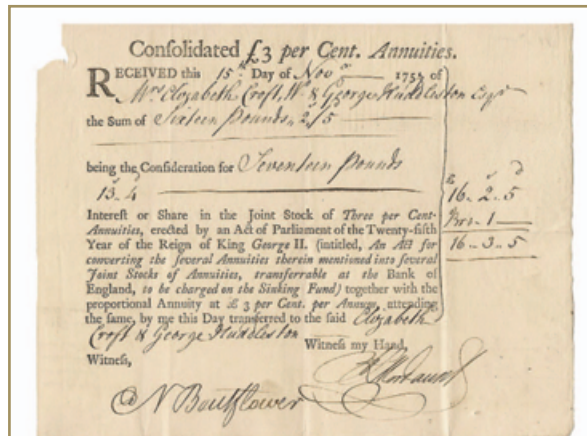 Consolidated £3 per Cent. Annuities.
RECEIVED this 15th Day of Novr 175 of
Mrs Elizabeth Croft, W & George Huddleston Esqr
the Sum of Sixteen Pounds 2/5
being the Consideration for Seventeen Pounds
13s 4d
Interest or Share in the Joint Stock of Three per Cent.
Annuities, erected by an Act of Parliament of the Twenty-fifth
Year of the Reign of King George II. (intitled, An Act for
converting the several Annuities therein mentioned into several
Joint Stocks of Annuities, transferrable at the Bank of
England, to be charged on the Sinking Fund) together with the
proportional Annuity at £3 per Cent. per Annum, attending
the same, by me this Day transferred to the said Elizabeth
Croft & George Huddleston
Witness my Hand,
Witness,
N Boutflower
£ s d
16 - 2 - 5
Bro - 1 -
16 - 3 - 5